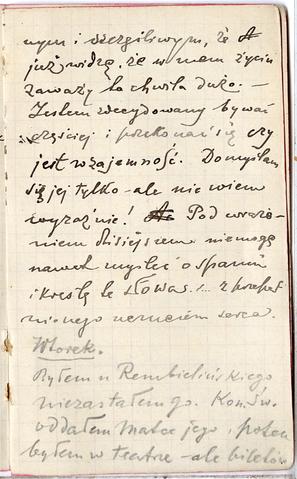 nym i szczęśliwym, że
już widzę, że w mem życiu
zaważy ta chwila dużo. —
Jestem zdecydowany bywać
częściej i przekonać się czy
jest wzajemność. Domyślam
się jej tylko – ale nie wiem
wyraźnie! Pod wraże-
niem dzisiejszem niemogę
nawet myśleć o spaniu
i kreślę te słowa ... z przepeł
nionego uczuciem serca.
Wtorek.
Byłem u Rembielińskiego
niezastałem go. Kon. Św.
oddałem matce jego, potem
byłem w teatrze – ale biletów